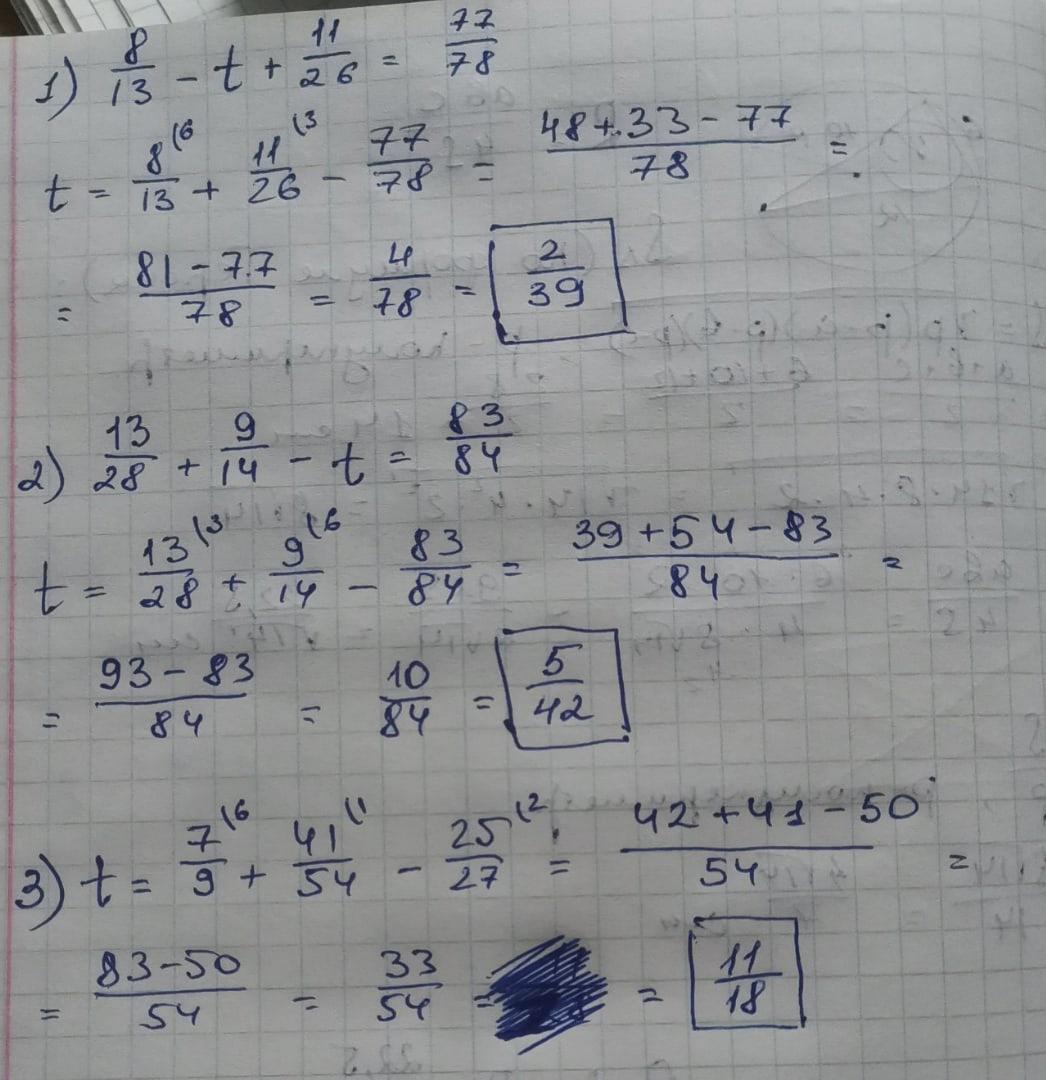 1) 8/13 - t + 11/26 = 77/78
t = 8/13 (6 + 11/26 (3 - 77/78 = (48+33-77)/78 =
= (81-77)/78 = 4/78 = 2/39
2) 13/28 + 9/14 - t = 83/84
t = 13/28 (3 + 9/14 (6 - 83/84 = (39+54-83)/84 =
= (93-83)/84 = 10/84 = 5/42
3) t = 7/9 (6 + 41/54 (1 - 25/27 (2 = (42+41-50)/54 =
= (83-50)/54 = 33/54 = = 11/18